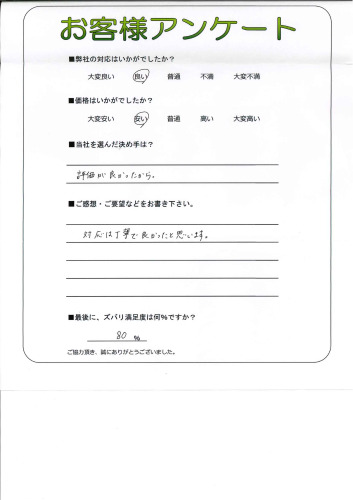 お客様アンケート
■弊社の対応はいかがでしたか?
大変良い 良い 普通 不満 大変不満
■価格はいかがでしたか?
大変安い 安い 普通 高い 大変高い
■当社を選んだ決め手は?
評価が良かったから。
■ご感想・ご要望などをお書き下さい。
対応は丁寧で良かったと思います。
■最後に、ズバリ満足度は何%ですか?
80 %
ご協力頂き、誠にありがとうございました。